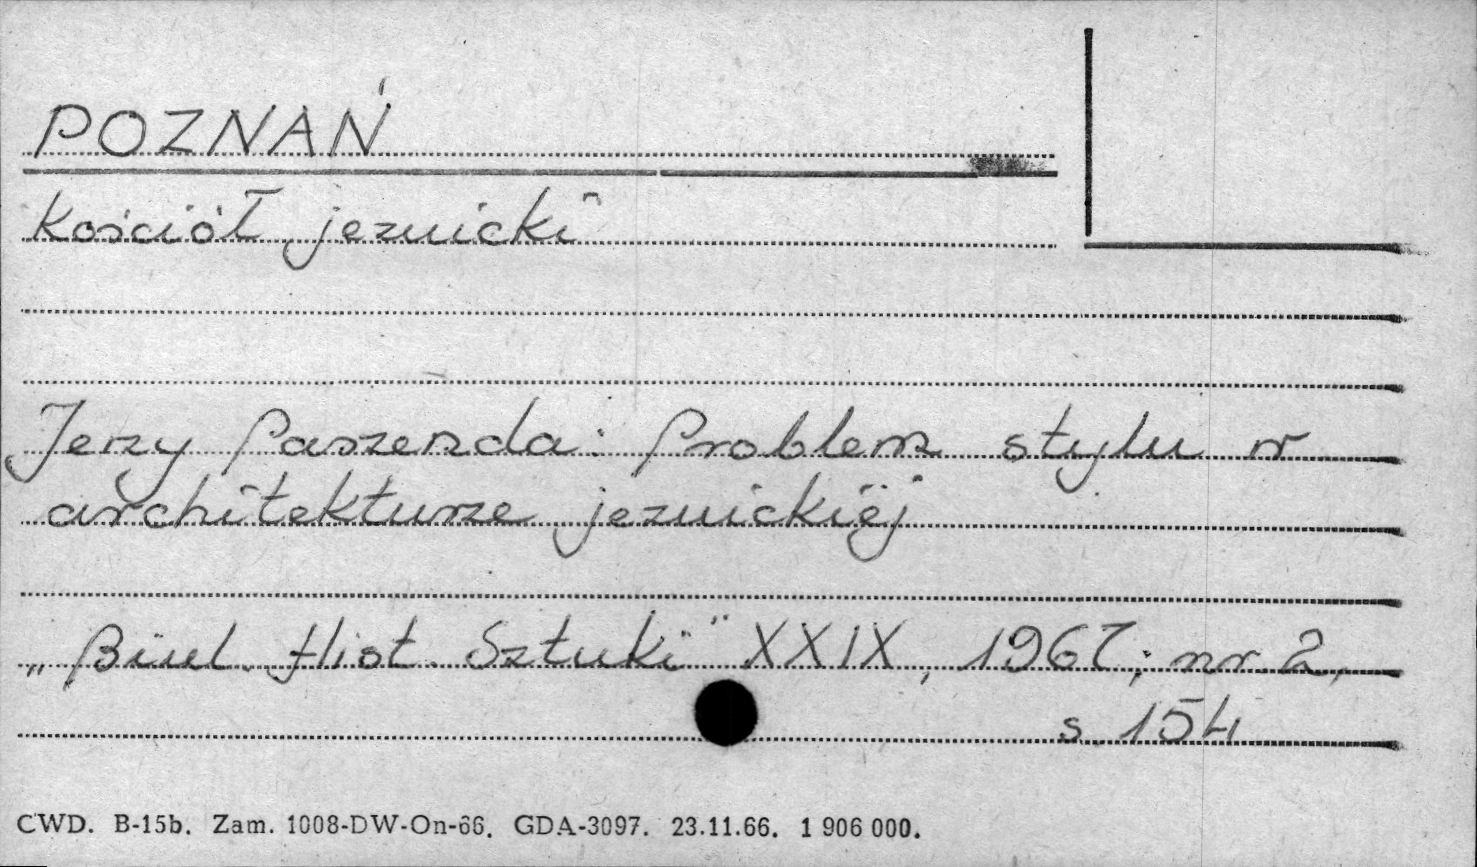 POZNAŃ
Kościół jezuicki
Jerzy Paszenda: Problem stylu w
architekturze jezuickiej
„Biul. Hist. Sztuki" XXIX, 1967, nr 2,
s. 154
CWD. B-15b. Zam. 1008-DW-On-66. GDA-3097. 23.11.66. 1 906 000.